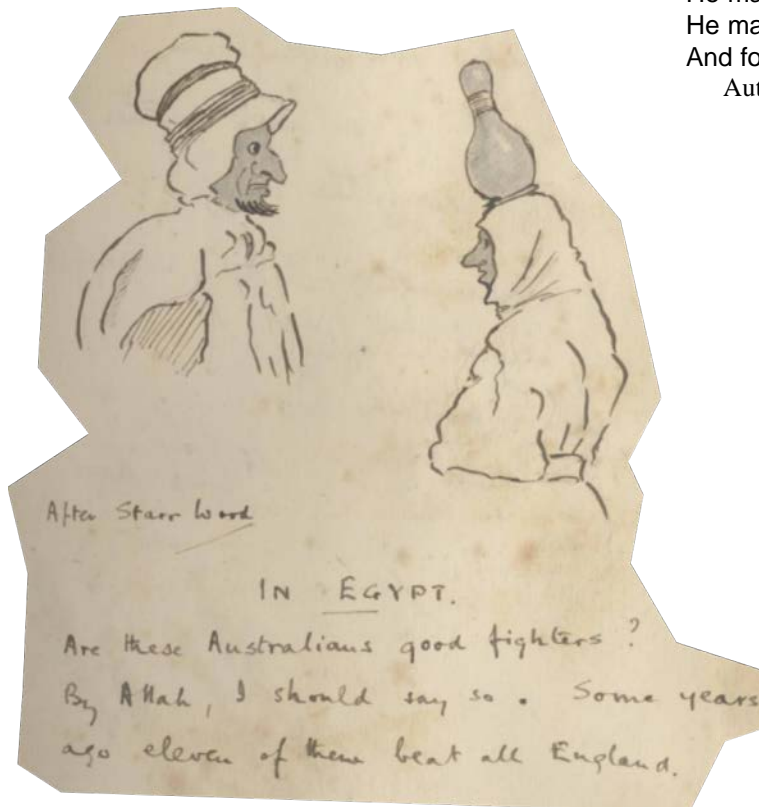 He ma
He ma
And fo
Aut
After Starr Wood
IN EGYPT.
Are these Australians good fighters ?
By Allah, I should say so. Some years
ago eleven of them beat all England.